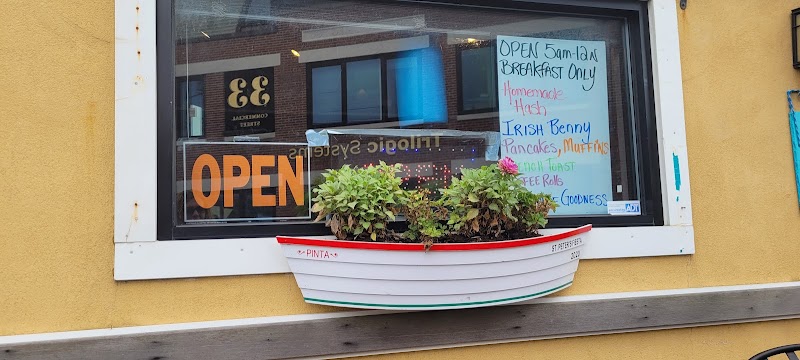 33
COMMERCIAL
STREET
OPEN
Trilogic Systems
OPEN 5am-12N
BREAKFAST ONLY
Homemade
Hash
IRISH Benny
Pancakes, Muffins
TOAST
ROLLS
GOODNESS
ADT
PINTA
ST PETER'S FIESTA